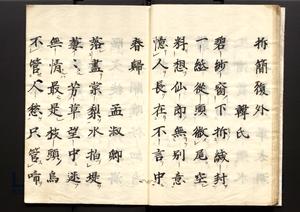 折簡復外
韓氏
碧紗窓下拆緘封
一紙從頭徹尾空
料想仙郎無別意
憶人長在不言中
春歸
孟淑卿
落盡棠梨水拍堤
萋〻芳草望中迷
無情最是枝頭鳥
不管人愁只管啼